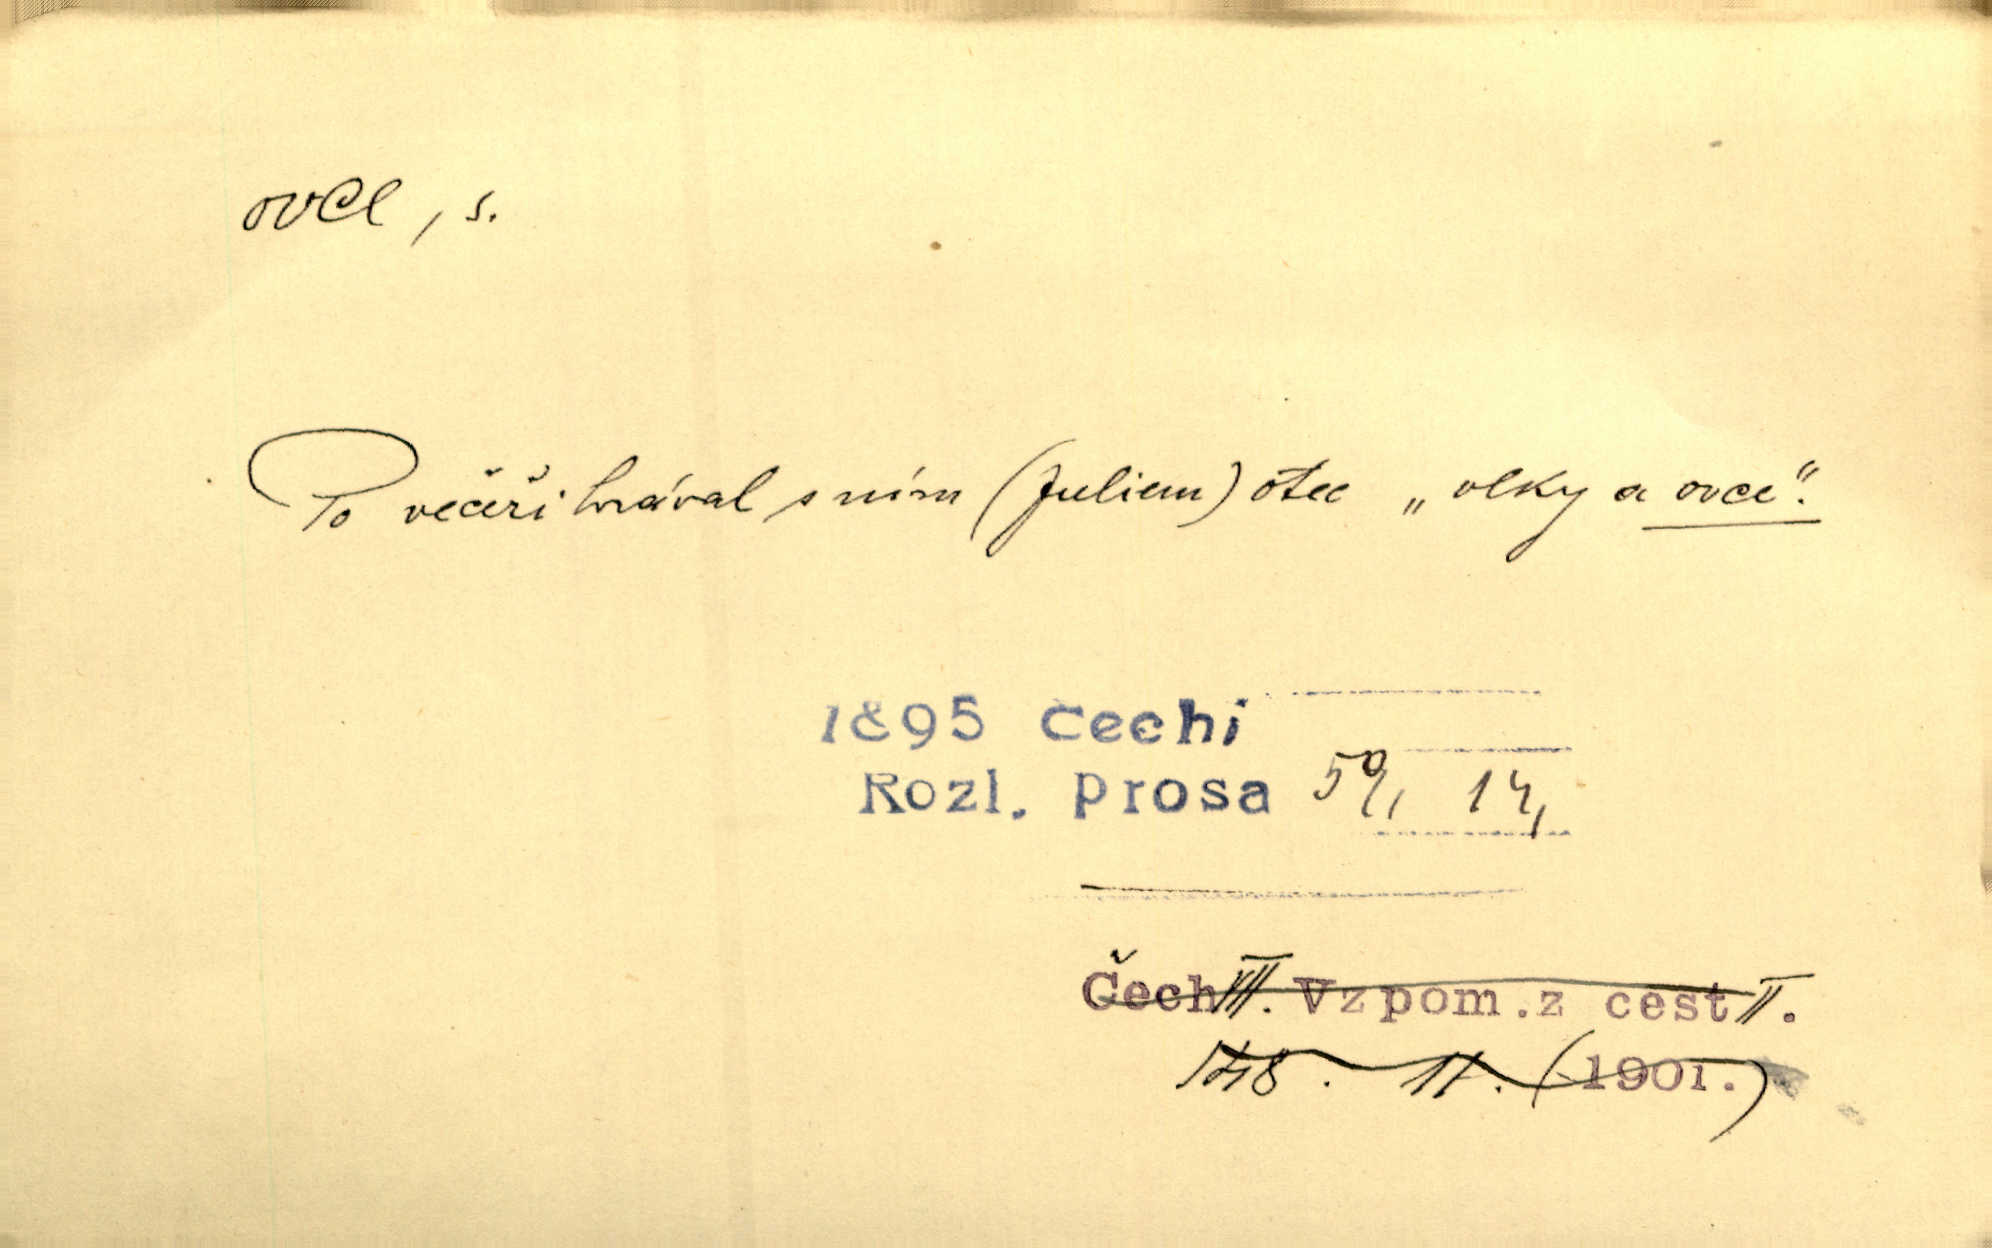 ovce, s.
Po večeři hrával s ním (Juliem) otec „vlky a ovce“.
1895 Čechi
Rozl. Prosa 50/, 14,
Čech VII. Vzpom. z cest II.
148. 11. (1901.)